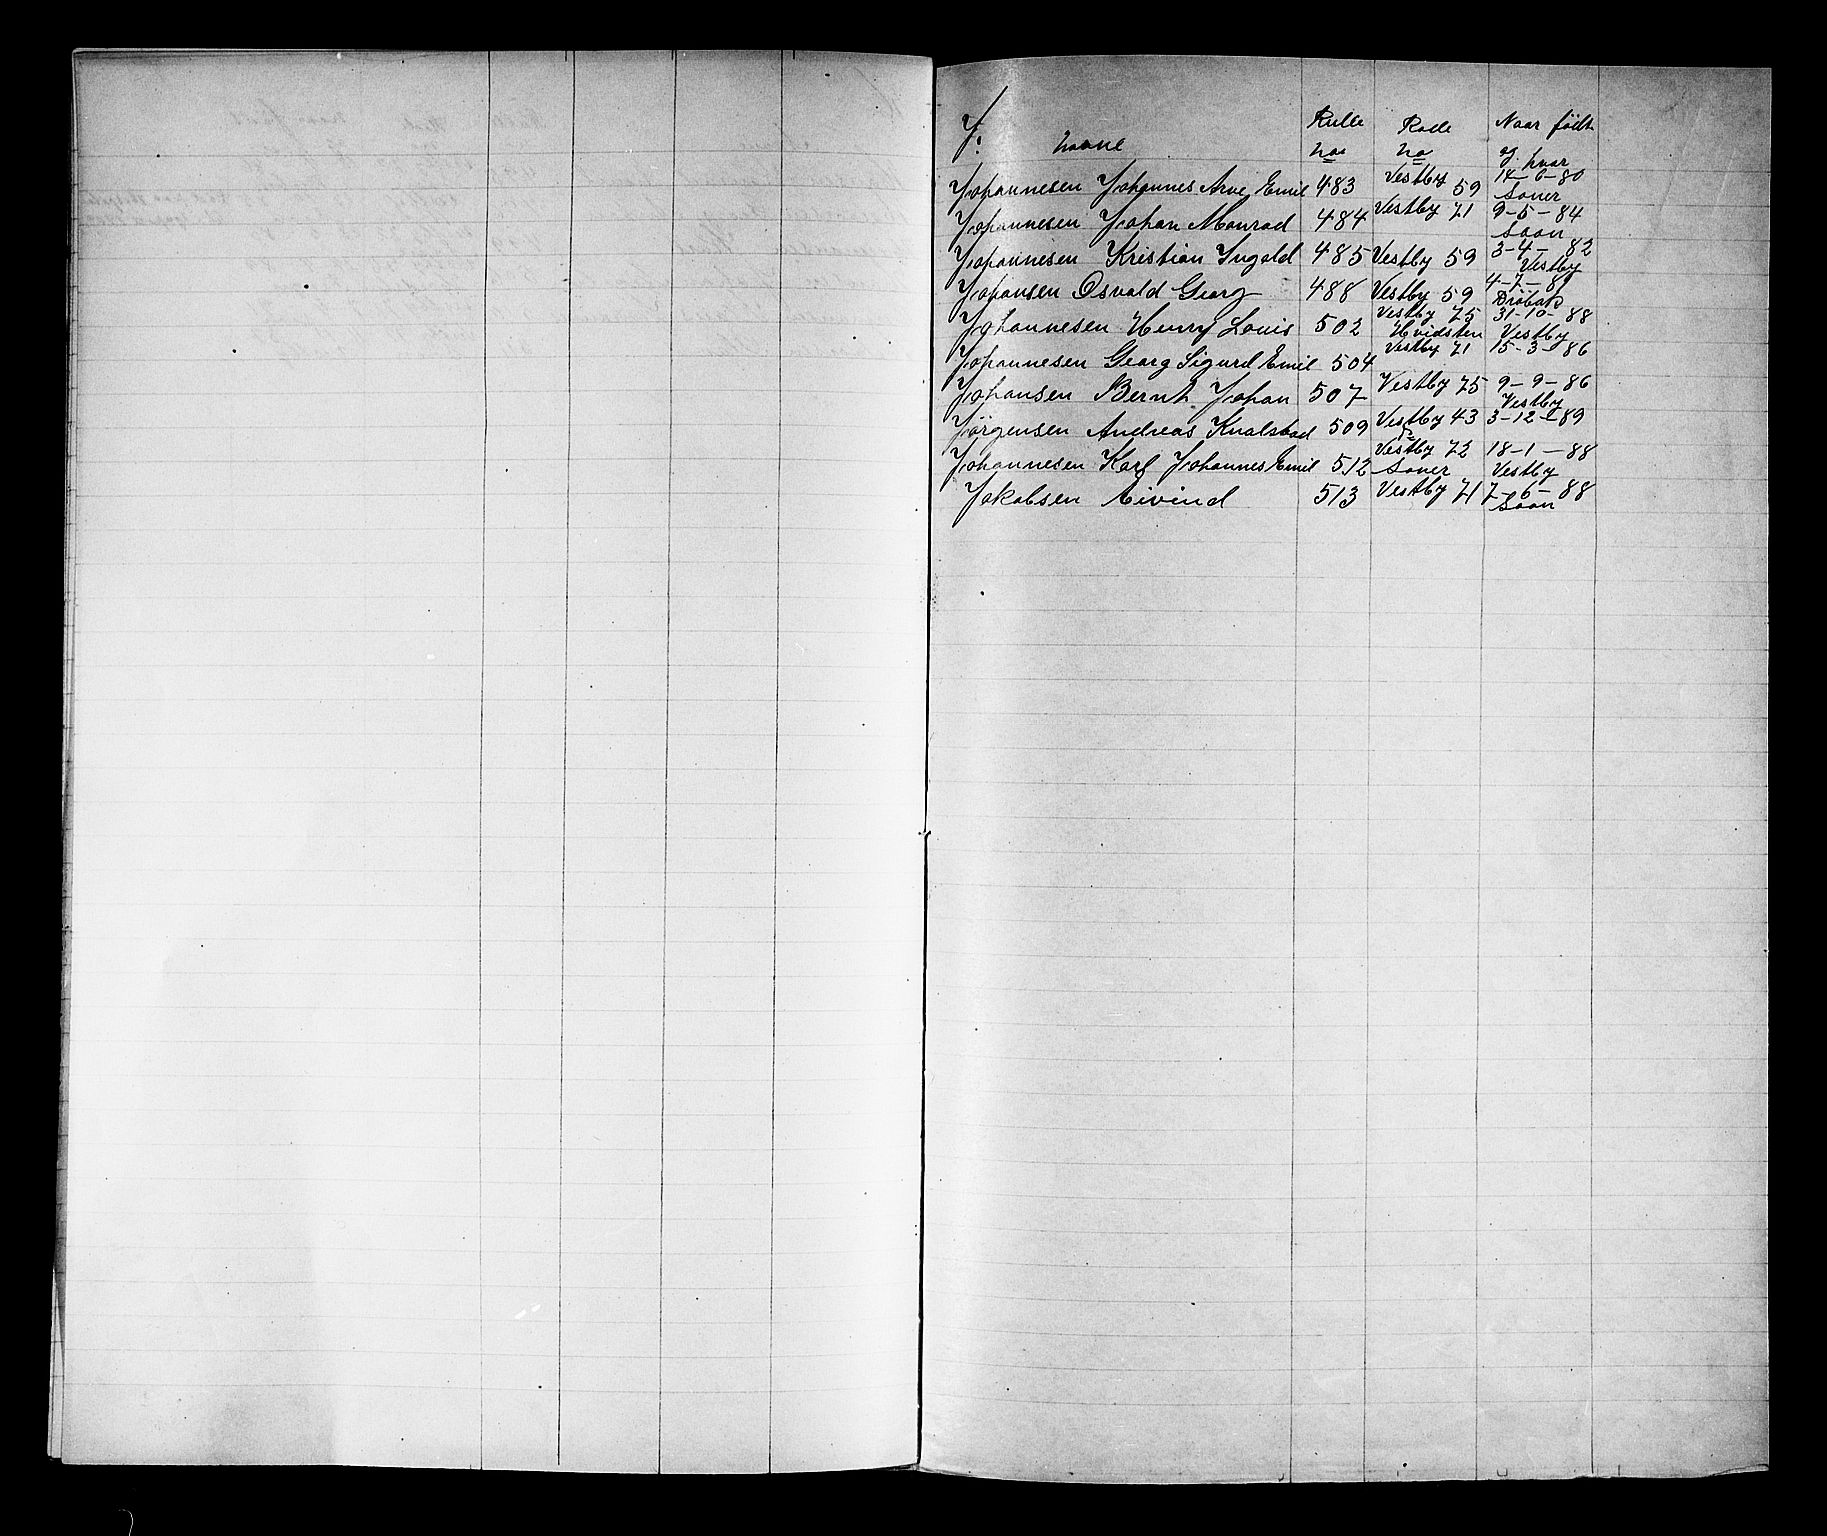 J:
Navne Rulle no Rode no Naar født og hvor
Johannesen Johannes Arve Emil 483 Vestby 59 14-6-80 Soner
Johannesen Johan Monrad 484 Vestby 71 9-5-84 Soon
Johannesen Kristian Ingold 485 Vestby 59 3-4-82 Vestby
Johansen Osvald Georg 488 Vestby 59 4-7-81 Drøbak
Johannesen Henry Louis 502 Vestby 75 Hvidsten 31-10-88 Vestby
Johannesen Georg Sigurd Emil 504 Vestby 71 15-3-86
Johansen Bernh. Johan 507 Vestby 75 9-9-86 Vestby
Jørgensen Andreas Knalstad 509 Vestby 43 3-12-89
Johannesen Karl Johannes Emil 512 Vestby 72 Soner 18-1-88 Vestby
Jakobsen Eivind 513 Vestby 71 7-6-88 Soon